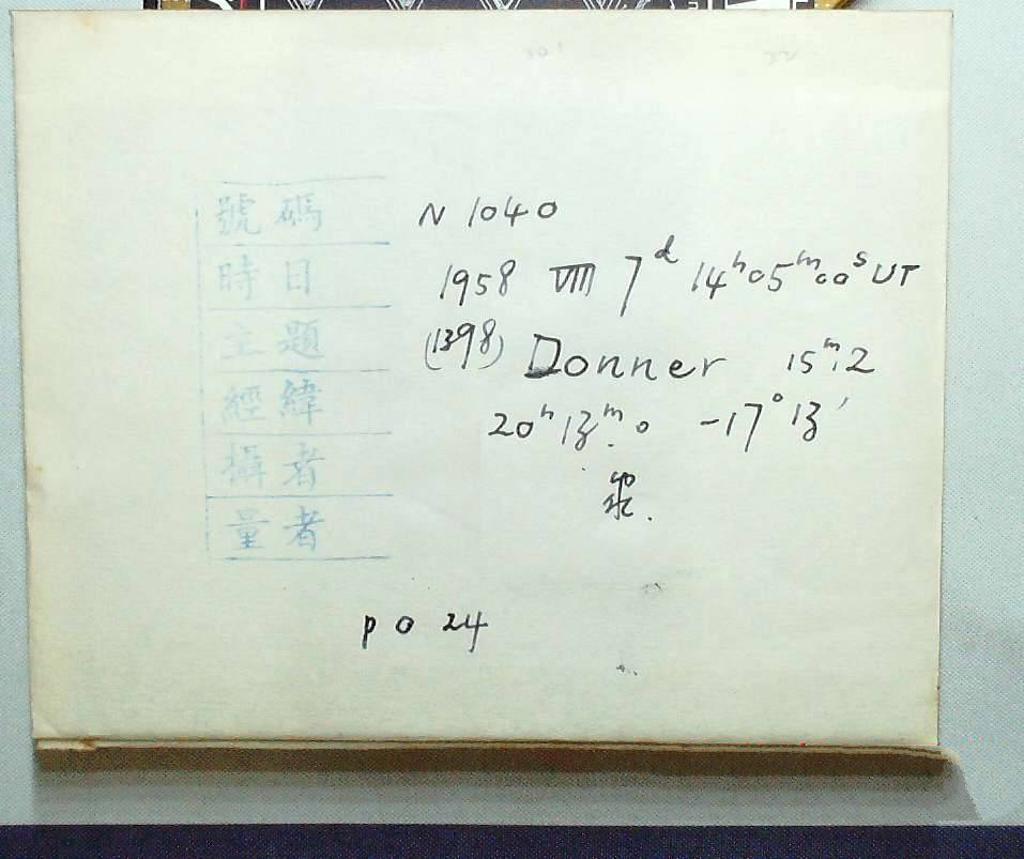 號碼 N 1040
時日 1958 VIII 7ᵈ 14ʰ05ᵐ00ˢ UT
主題 (1398) Donner 15ᵐ.2
經緯 20ʰ13ᵐ.0 -17°13′
攝者
量者
p o 24